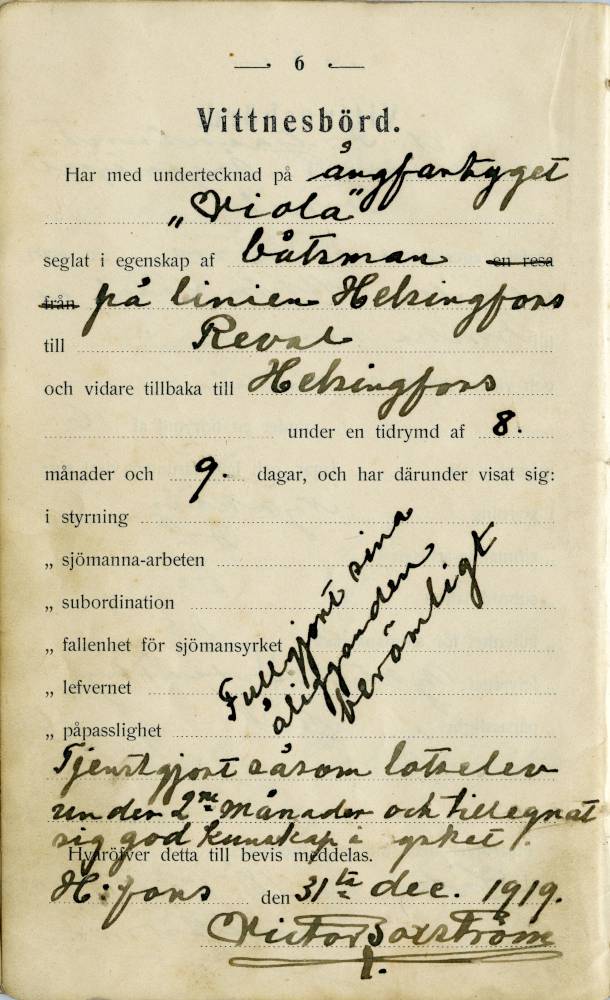 6
Vittnesbörd.
Har med undertecknad på ångfartyget
„Viola"
seglat i egenskap af båtsman en resa
från på linien Helsingfors
till Reval
och vidare tillbaka till Helsingfors
under en tidrymd af 8.
månader och 9. dagar, och har därunder visat sig:
i styrning
„ sjömanna-arbeten
„ subordination
„ fallenhet för sjömansyrket
„ lefvernet
„ påpasslighet
Fullgjort sina
åligganden
berömligt
Tjenstgjort såsom lotselev
under 2ne månader och tillegnat
sig god kunskap i yrket.
Hvaröfver detta till bevis meddelas.
H:fors den 31 dec. 1919.
Victor